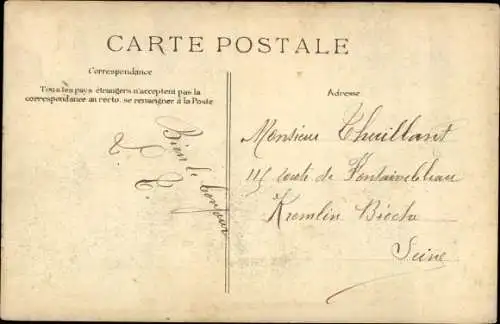 CARTE POSTALE
Correspondance
Tous les pays étrangers n'acceptent pas la
correspondance au recto. se renseigner à la Poste
Bien le bonjour
Adresse
Monsieur Thuillant
115 route de Fontainebleau
Kremlin Bicêtre
Seine